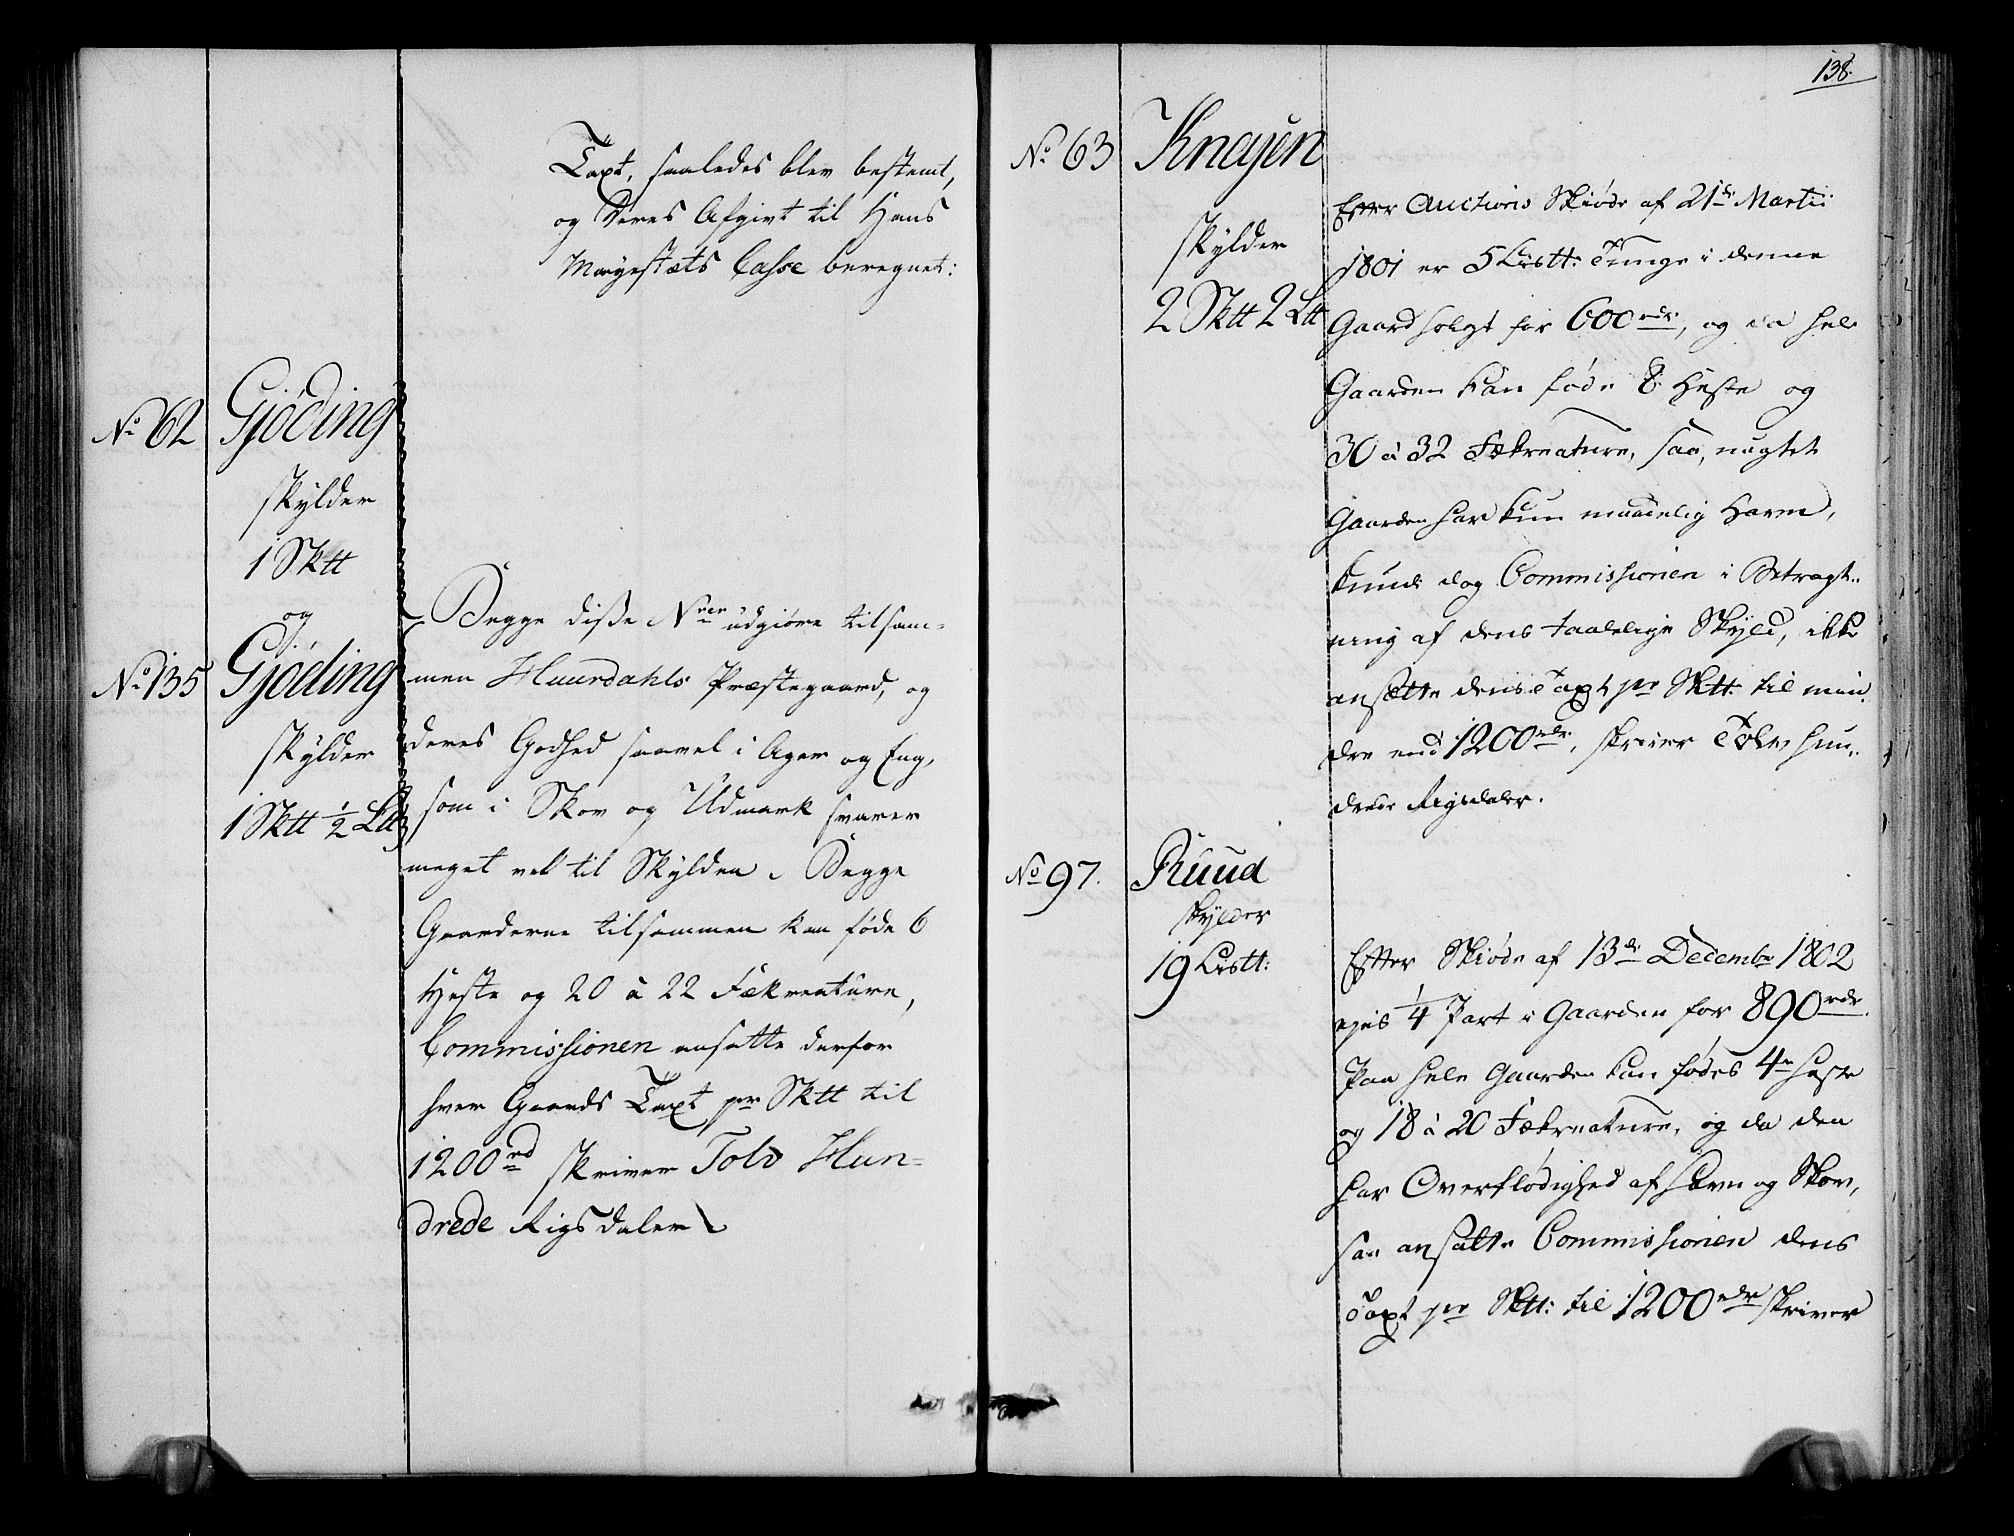 Taxt, saaledes blev bestemt,
og deres Afgivt til Hans
Mayestæts Casse beregnet:
No 62
Gjöding
skylder
1 Sktt
og
No 135
Gjöding
skylder
1 Sktt ½ Ltt
Begge disse Nrer udgiöre tilsam-
men Huurdahls Præstegaard, og
deres Godhed saavel i Ager og Eng,
som i Skov og Udmark svarer
meget vel til Skylden. Begge
Gaarderne tilsammen kan föde 6
Heste og 20 à 22 Fækreature,
Commissionen ansatte derfor
hver Gaards Taxt pr Sktt til
1200 rd skriver Tolv Hun-
drede Rigsdaler
138.
No 63
Knajen
skylder
2 Sktt 2 Ltt
Efter Auctions Skiöde af 21de Martii
1801 er 5 Listt: Tunge i denne
Gaard solgt for 600 rdr, og da hele
Gaarden kan föde 8 Heste og
30 à 32 Fækreature, saa, uagtet
Gaarden har kun maadelig Havn,
kunde dog Commissionen i Betragt-
ning af dens taalelige Skyld, ikke
ansætte dens Taxt pr Sktt til min-
dre end 1200 rdr, skriver Tolv hun-
drede Rigsdaler.
No 97.
Ruud
skylder
19 Listt:
Efter Skiöde af 13de Decembr 1802
ejes ¼ Part i Gaarden for 890 rdr.
Paa hele Gaarden kan födes 4re Heste
og 18 à 20 Fækreature, og da den
har Overflödighed af Havn og Skov,
saa ansatte Commissionen dens
Taxt pr Sktt: til 1200 rdr skriver